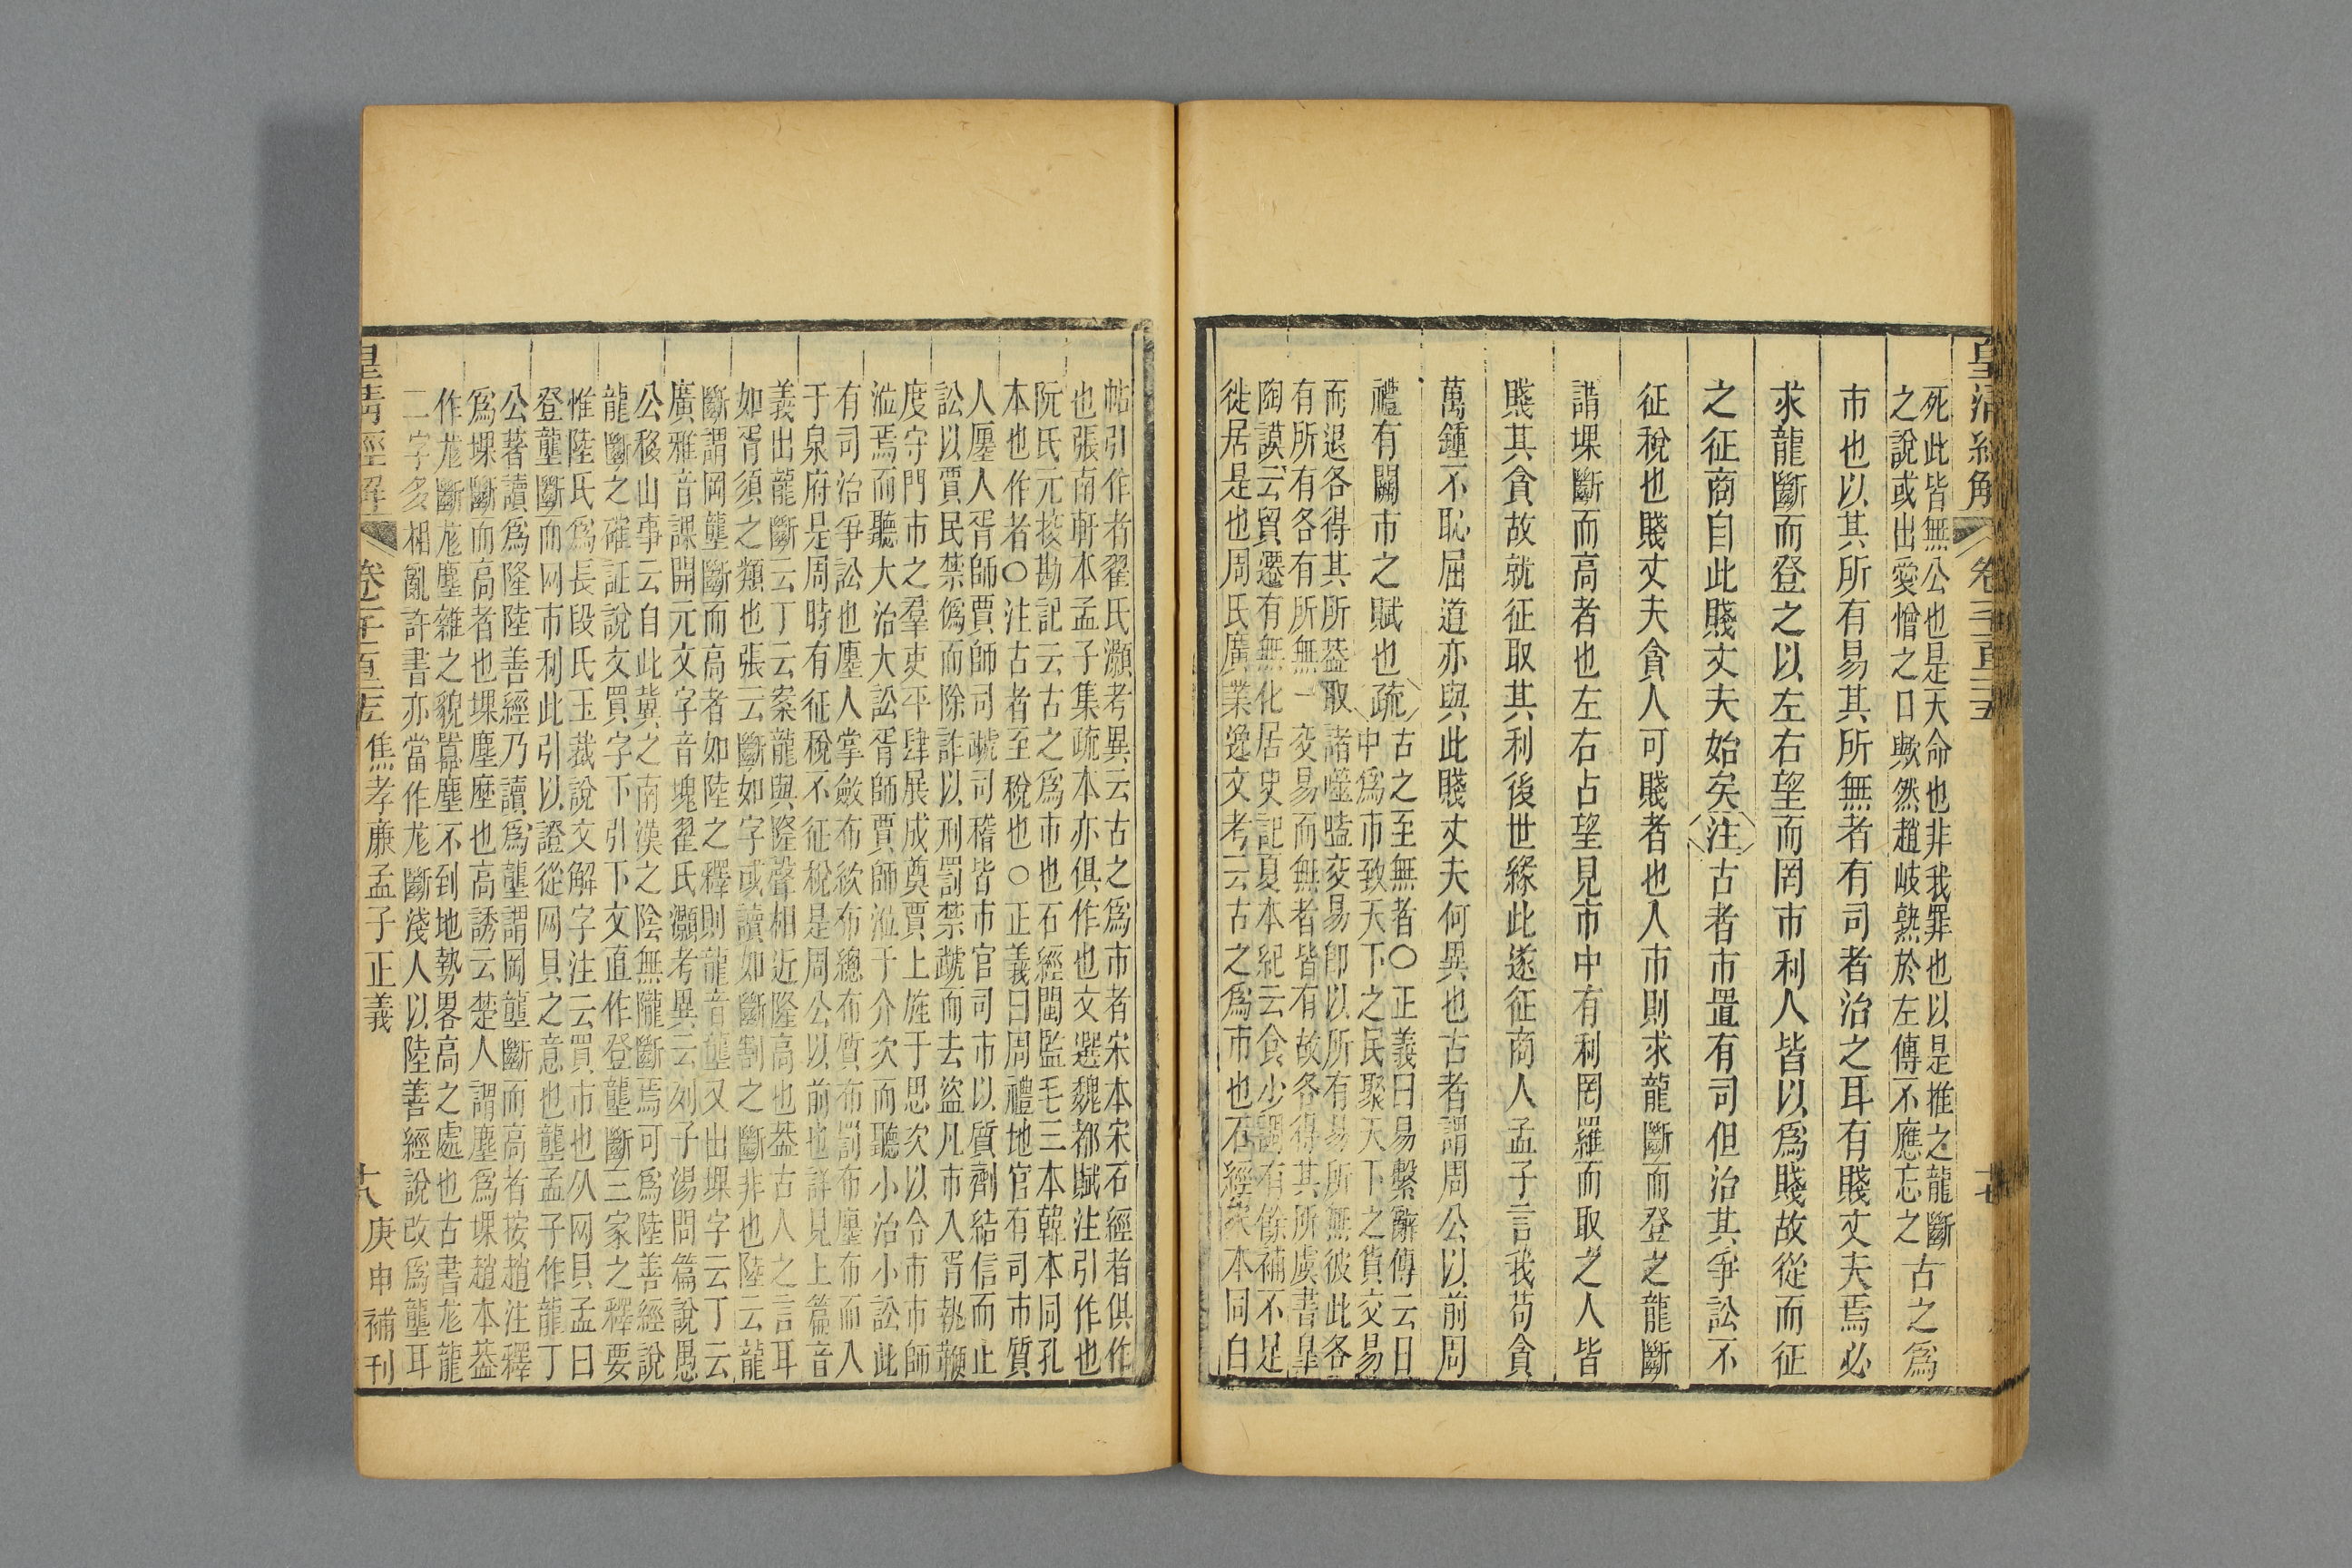 死此皆無公也是天命也非我罪也以是推之龍斷
之說或出愛憎之口歟然趙岐熟於左傳不應忘之
古之爲
市也以其所有易其所無者有司者治之耳有賤丈夫焉必
求龍斷而登之以左右望而罔市利人皆以爲賤故從而征
之征商自此賤丈夫始矣注古者市置有司但治其爭訟不
征稅也賤丈夫貪人可賤者也人市則求龍斷而登之龍斷
謂堁斷而高者也左右占望見市中有利罔羅而取之人皆
賤其貪故就征取其利後世緣此遂征商人孟子言我苟貪
萬鍾不恥屈道亦與此賤丈夫何異也古者謂周公以前周
禮有關市之賦也疏
古之至無者○正義曰易繫辭傳云日
中爲市致天下之民聚天下之貨交易
而退各得其所葢取諸噬嗑交易卽以所有易所無彼此各
有所有各有所無一交易而無者皆有故各得其所虞書臯
陶謨云貿遷有無化居史記夏本紀云食少調有餘補不足
徙居是也周氏廣業逸文考云古之爲市也石經宋本同白
皇清經解
卷
帖引作者翟氏灝考異云古之爲市者宋本宋石經者俱作
也張南軒本孟子集疏本亦俱作也文選魏都賦注引作也
阮氏元挍勘記云古之爲市也石經閩監毛三本韓本同孔
本也作者○注古者至稅也○正義曰周禮地官有司市質
人廛人胥師賈師司虣司稽皆市官司市以質劑結信而止
訟以賈民禁僞而除詐以刑罰禁虣而去盜凡市入胥執鞭
度守門市之羣吏平肆展成奠賈上旌于思次以令市市師
涖焉而聽大治大訟胥師賈師涖于介次而聽小治小訟此
有司治爭訟也廛人掌斂布絘布總布質布罰布廛布而入
于泉府是周時有征稅不征稅是周公以前也詳見上篇音
義出龍斷云丁云案龍與隆聲相近隆高也葢古人之言耳
如胥須之類也張云斷如字或讀如斷割之斷非也陸云龍
斷謂岡壟斷而高者如陸之釋則龍音壟又出堁字云丁云
廣雅音課開元文字音塊翟氏灝考異云列子湯問篇說愚
公移山事云自此冀之南漢之陰無隴斷焉可爲陸善經說
龍斷之確証說文買字下引下文直作登壟斷三家之釋要
惟陸氏爲長段氏玉裁說文解字注云買市也从网貝孟曰
登壟斷而网市利此引以證從网貝之意也壟孟子作龍丁
公著讀爲隆陸善經乃讀爲壟謂岡壟斷而高者按趙注釋
爲堁斷而高者也堁塵壓也高誘云楚人謂塵爲堁趙本葢
作尨斷尨塵雜之貌囂塵不到地勢畧高之處也古書尨龍
二字多相亂許書亦當作尨斷淺人以陸善經說改爲壟耳
皇清經解
焦孝廉孟子正義
十八
庚申補刊